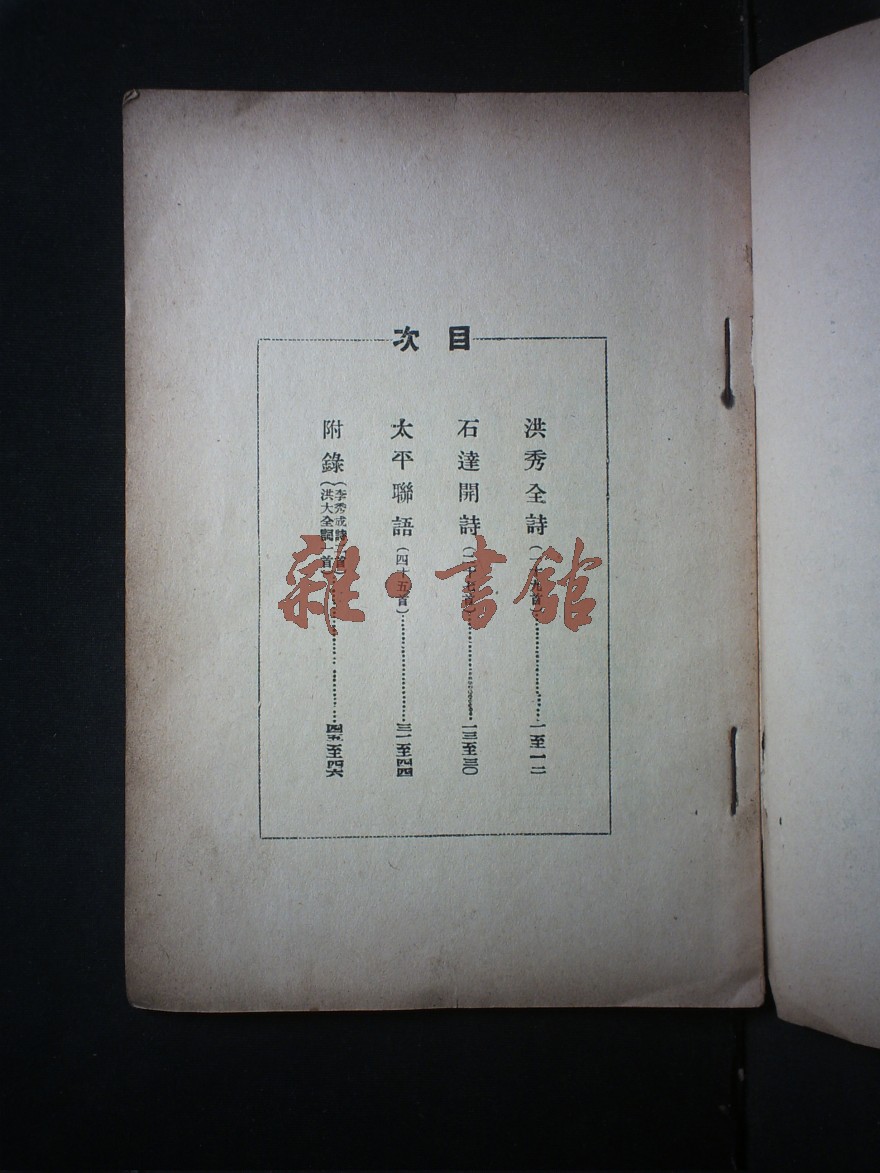 目次
洪秀全詩(十九首)……一至一二
石達開詩(二十七首)……一三至三〇
太平聯語(四十五首)……三一至四四
附錄(李秀成 首)(洪大全 一首)……四五至四六
雜·書館